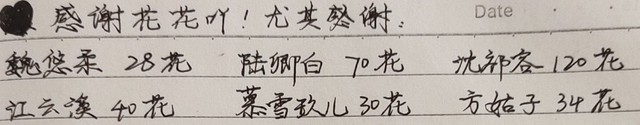 感谢花花吖！尤其感谢：
Date
魏悠柔 28花 陆卿白 70花 沈郗容 120花
江云溪 40花 慕雪玖儿 30花 方姑子 34花